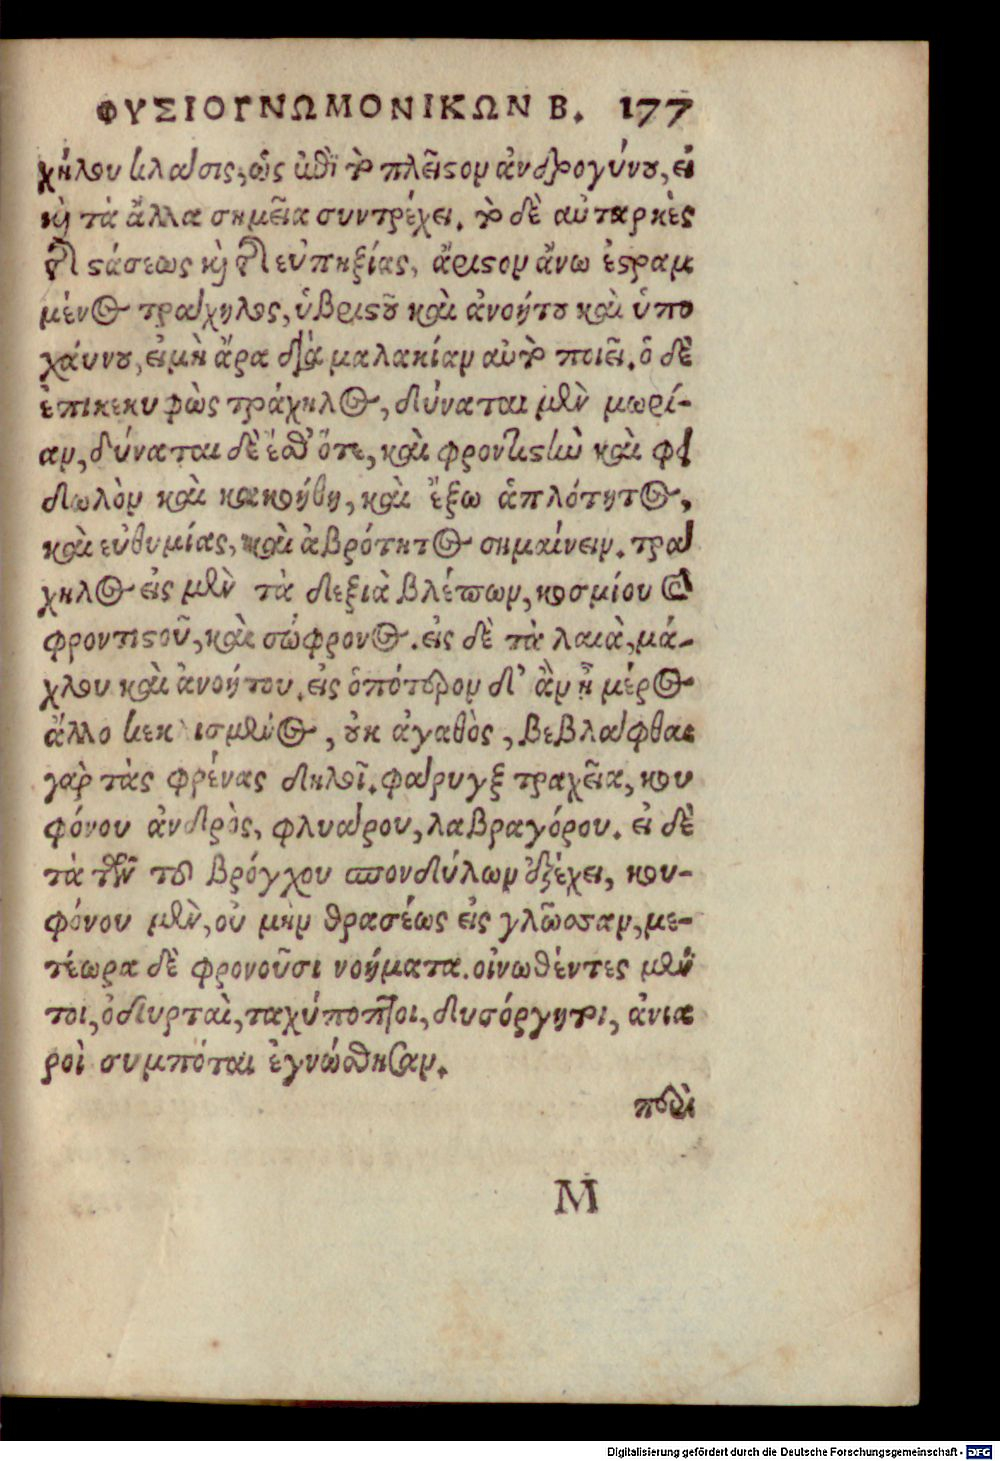 ΦΥΣΙΟΓΝΩΜΟΝΙΚΩΝ Β. 177
χήλου κλάσις, ὡς ἐπὶ τὸ πλεῖστον ἀνδρογύνου, εἰ
καὶ τὰ ἄλλα σημεῖα συντρέχει. τὸ δὲ αὐταρκὲς
τῆς στάσεως καὶ τῆς εὐπηξίας, ἄριστον ἄνω ἐστραμ
μένος τράχηλος, ὑβριστοῦ καὶ ἀνοήτου καὶ ὑπο
χάυνου, εἰμὴ ἄρα διὰ μαλακίαν αὐτὸ ποιεῖ. ὁ δὲ
ἐπικεκυφὼς τράχηλος, δύναται μὲν μωρί-
αν, δύναται δὲ ἔσθ' ὅτε, καὶ φροντιστὴν καὶ φει
δωλὸν καὶ κακοήθη, καὶ ἔξω ἁπλότητος,
καὶ εὐθυμίας, καὶ ἁβρότητος σημαίνειν. τρά
χηλος εἰς μὲν τὰ δεξιὰ βλέπων, κοσμίου καὶ
φροντιστοῦ, καὶ σώφρονος. εἰς δὲ τὰ λαιὰ, μά-
χλου καὶ ἀνοήτου. εἰς ὁπότερον δ' ἂν ἢ μέρος
ἄλλο κεκλισμένος, οὐκ ἀγαθὸς, βεβλάφθαι
γὰρ τὰς φρένας δηλοῖ. φάρυγξ τραχεῖα, κου
φόνου ἀνδρὸς, φλυάρου, λαβραγόρου. εἰ δὲ
τὰ τῶν τοῦ βρόγχου σπονδύλων ἐξέχει, κου-
φόνου μὲν, οὐ μὴν θρασέως εἰς γλῶσσαν, με-
τέωρα δὲ φρονοῦσι νοήματα. οἰνωθέντες μέν
τοι, ὀδυρταὶ, ταχύποτμοι, δυσόργητοι, ἀνια
ροὶ συμπόται ἐγνώσθησαν.
περὶ
M
Digitalisierung gefördert durch die Deutsche Forschungsgemeinschaft - DFG